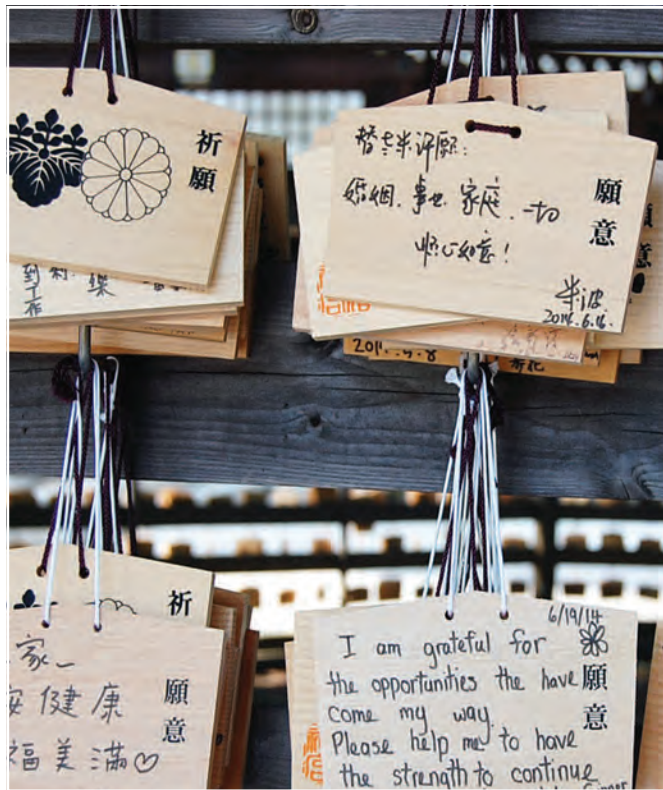 祈願
到工作
樂
替 许愿:
婚姻、事业、家庭、一切
顺心如意!
2014.6.16.
願意
祈
家
安健康
福美滿♡
願意
6/19/14
I am grateful for
the opportunities the have
come my way.
Please help me to have
the strength to continue
願意